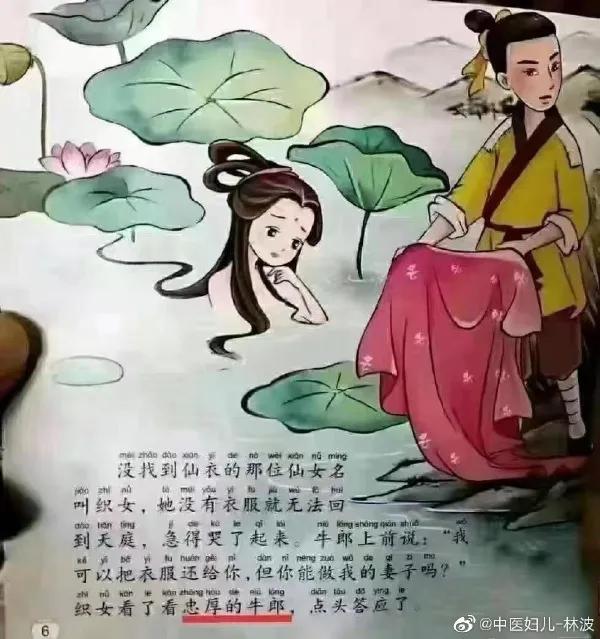 méi zhǎo dào xiān yī de nà wèi xiān nǚ míng
没找到仙衣的那位仙女名
jiào zhī nǚ tā méi yǒu yī fu jiù wú fǎ huí
叫织女，她没有衣服就无法回
dào tiān tíng jí de kū le qǐ lái niú láng shàng qián shuō wǒ
到天庭，急得哭了起来。牛郎上前说：“我
kě yǐ bǎ yī fu huán gěi nǐ dàn nǐ néng zuò wǒ de qī zi ma
可以把衣服还给你，但你能做我的妻子吗？”
zhī nǚ kàn le kàn zhōng hòu de niú láng diǎn tóu dā ying le
织女看了看忠厚的牛郎，点头答应了。
6
@中医妇儿-林波